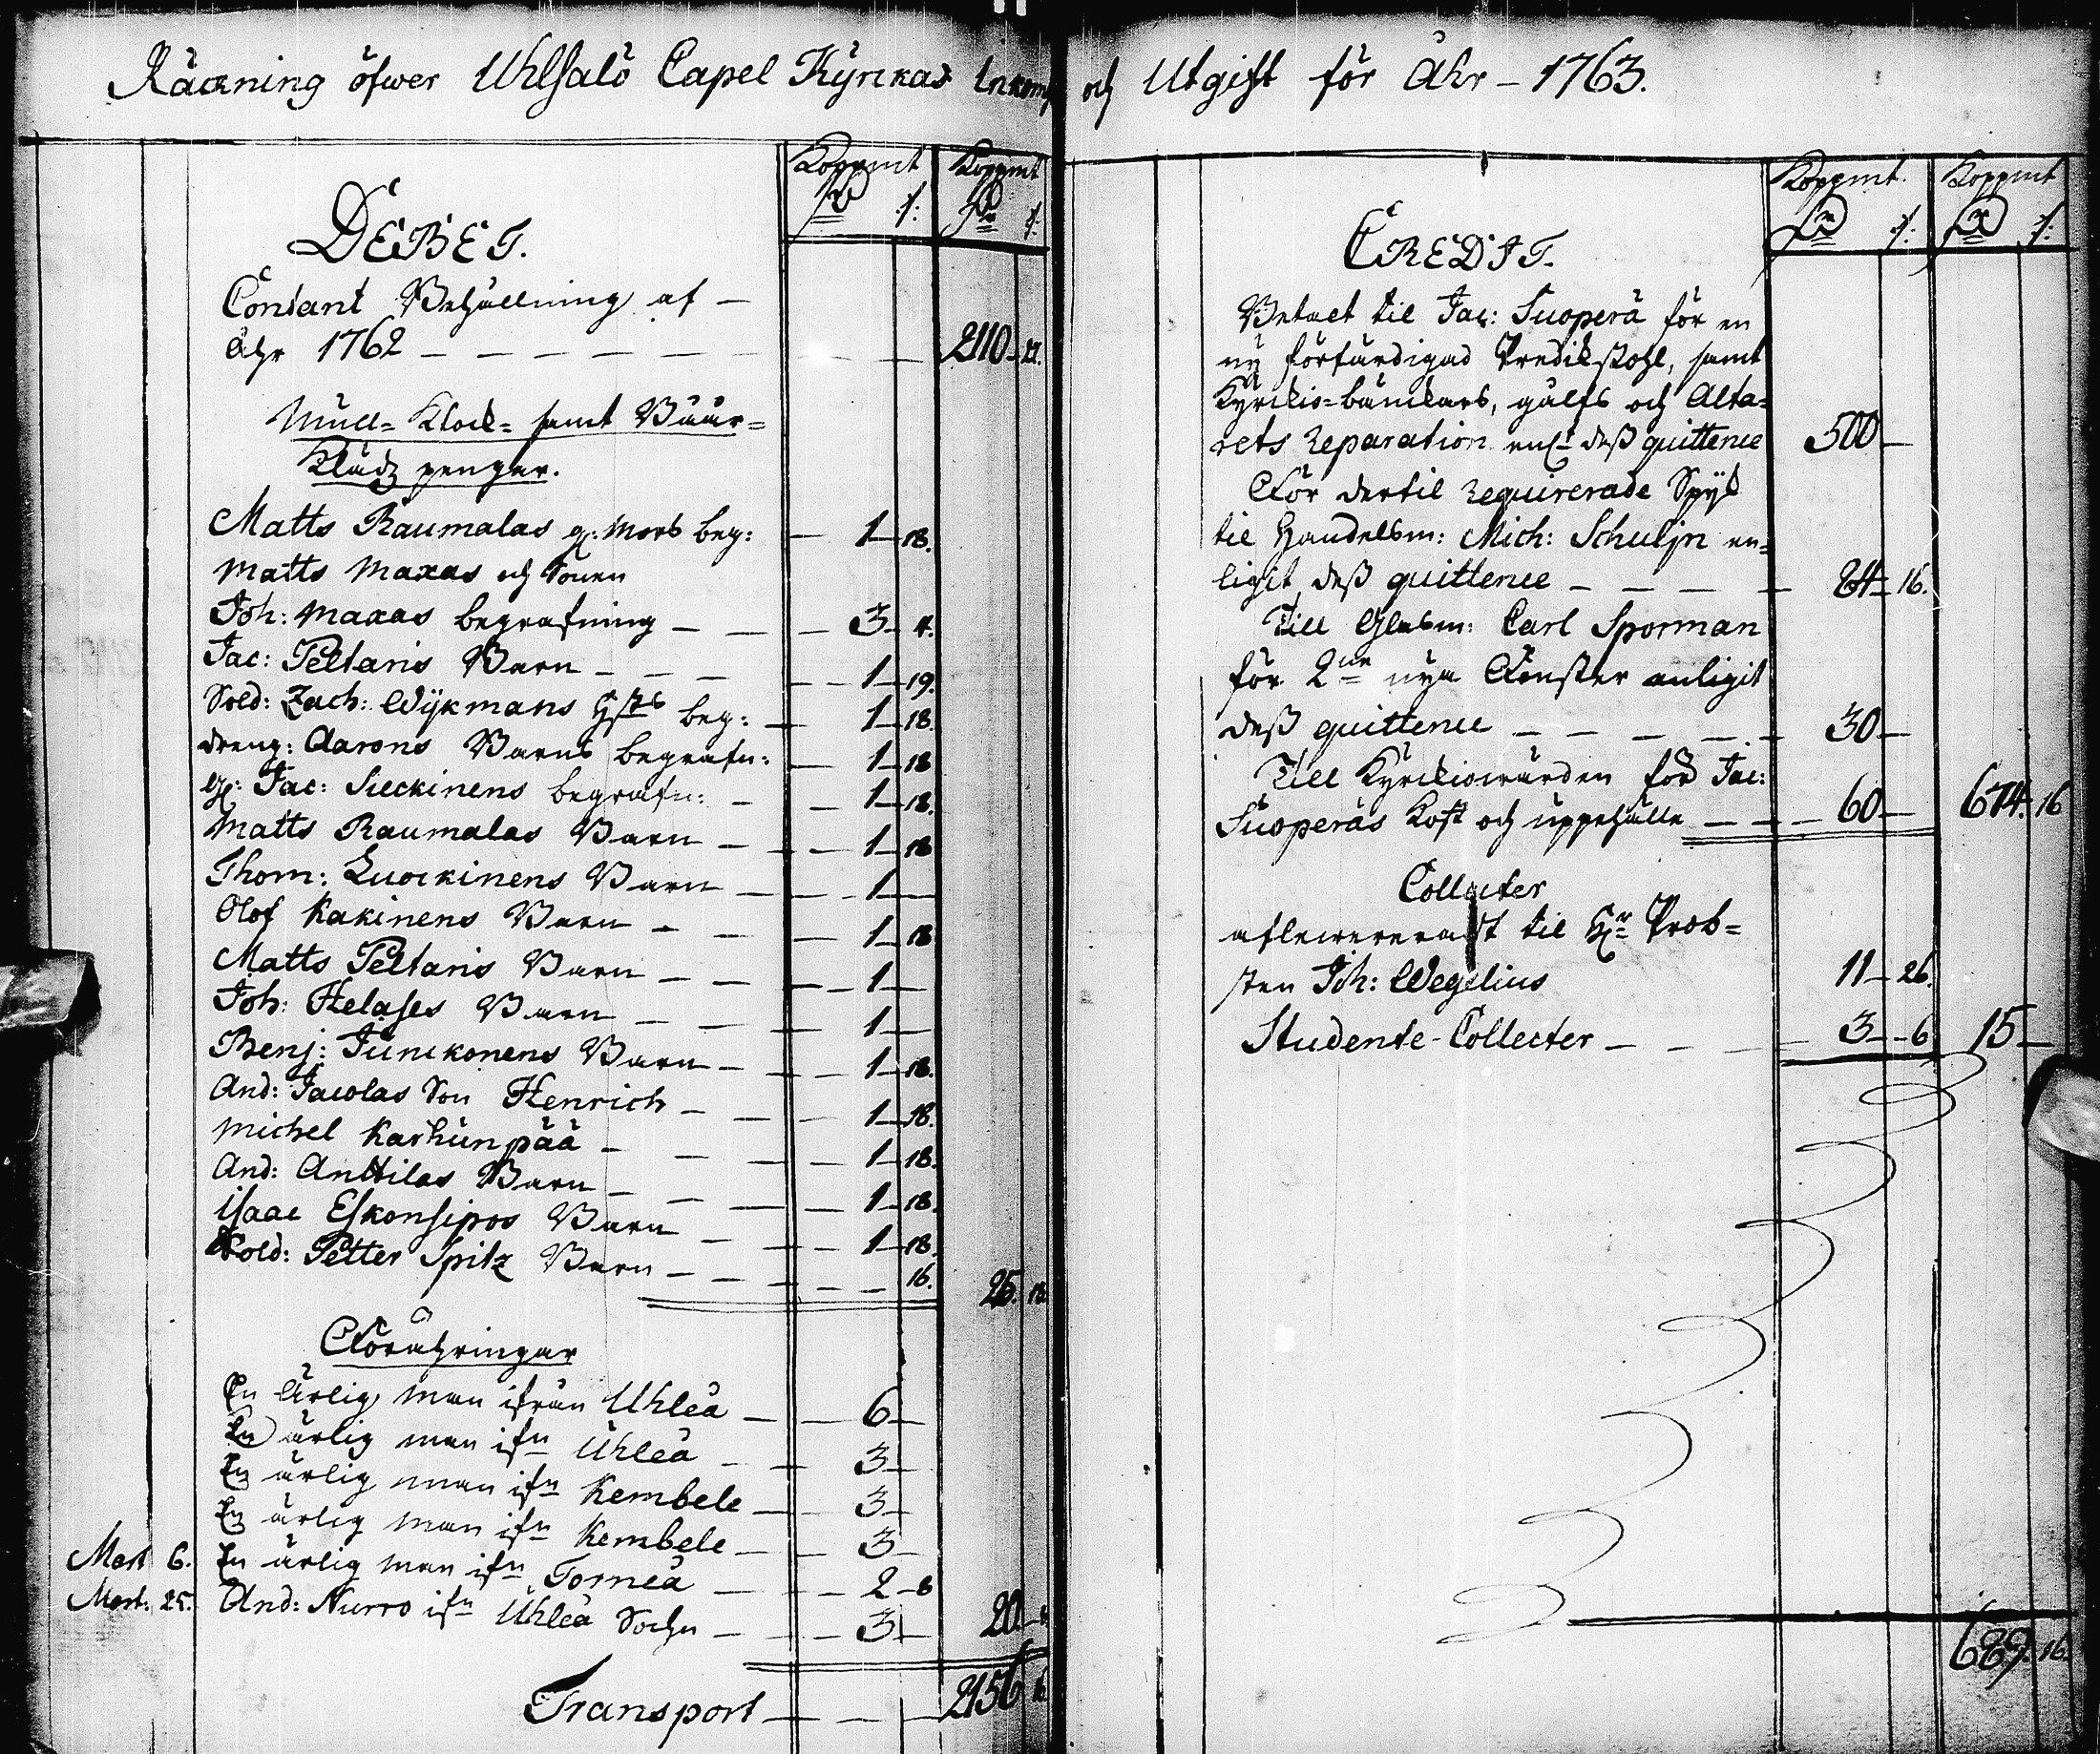 Räckning öfwer Uhlsalo Capel Kÿrckas Inkomst och Utgift för Åhr – 1763.
Koppmt Koppmt
DEBET.
Contant Behållning af –
Åhr 1762 – – – 2110 –
Mull- Klock- samt Båår-
Klädz penger.
Matts Raumalas g: Mors beg: – 1 – 18.
Matts Maxas och Sonen
Joh: Maxas begrafning – – 3 – 4.
Jac: Peltaris Barn – – 1 – 19.
Sold: Zach: Wijkmans Hstes beg: – 1 – 18.
dreng: Aarons Barns begrafn: – 1 – 18
g: Jac: Sieckinens begrafn: – 1 – 18.
Matts Raumalas Barn – – 1 – 18
Thom: Luockinens Barn – – 1 –
Olof Kakinens Barn – – 1 – 18
Matts Peltaris Barn – – 1 –
Joh: Helases Barn – – 1 –
Benj: Junckonens Barn – – 1 – 18.
And: Jacolas Son Henrich – – 1 – 18.
Michel Karhunpää – – 1 – 18.
And: Anttilas Barn – – 1 – 18.
Isaac Eskonsipos Barn – – 1 – 18.
Sold: Petter Spitz Barn – – 16. 25. 18.
Förähringar
En Ärlig man ifrån Uhleå – 6 –
En ärlig man ifn Uhleå – 3 –
En ärlig man ifn Kembele – 3 –
En ärlig man ifn Kembele – 3 –
Mart 6. En ärlig man ifn Torneå – 2 – 8
Mart: 25. And: Nurro ifn Uhleå Sochn – 3 – 20. –
Transport – – 2156
Koppmt. Koppmt
CREDIT.
Betalt til Jac: Suoperä för en
ny förfärdigad Predikstohl, samt
Kyrckio-bänckars, gålfs och Alta-
rets reparation enl: dess quittence 500 –
För dertil requirerade Spijk
til Handelsm: Mich: Schulin en-
ligit dess quittence – – – 84 – 16.
Till Glasm: Carl Sporman
för 2ne nya Fönster enligit
dess quittence – – – 30 –
Till Kyrckiowärden för Jac:
Suoperäs Kost och uppehälle – – 60 – 674. 16
Collecter
aflewererast til Hr Prob-
sten Joh: Wegelius 11 – 26.
Studente-Collecter – – 3 – 6 15 –
689. 16.